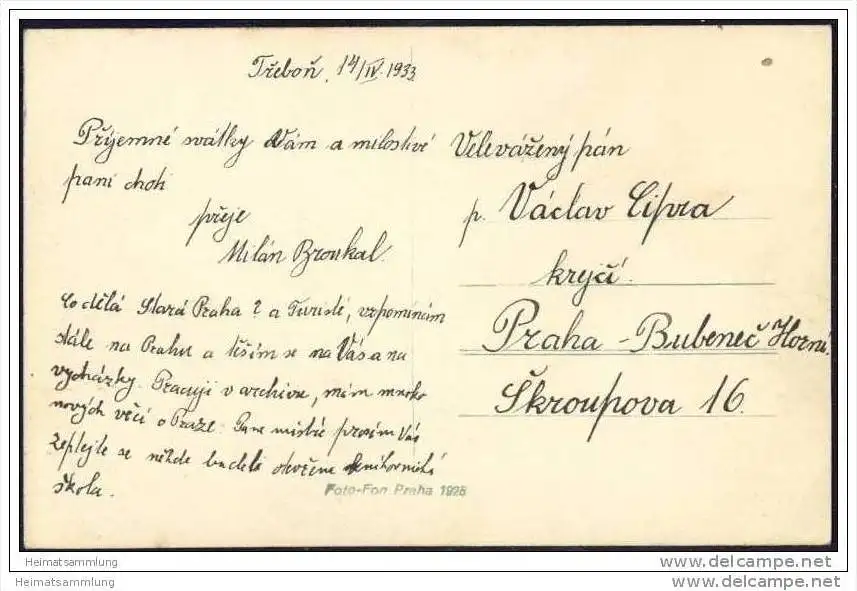 Třeboň, 14/IV. 1933.
Příjemné svátky Vám a milostivé
paní choti
přeje
Milán Broukal.
Co dělá Stará Praha? a Turisté, vzpomínám
stále na Prahu a těším se na Vás a na
vycházky. Pracuji v archivu, mám mnoho
nových věcí o Praze. Pane mistře prosím Vás
zeptejte se někde bude-li otevřena knihovnická
škola.
Velevážený pán
p. Václav Cipra
krejčí.
Praha - Bubeneč Horní.
Škroupova 16.
Foto-Fon Praha 1928
Heimatsammlung
Heimatsammlung
www.delcampe.net
www.delcampe.net